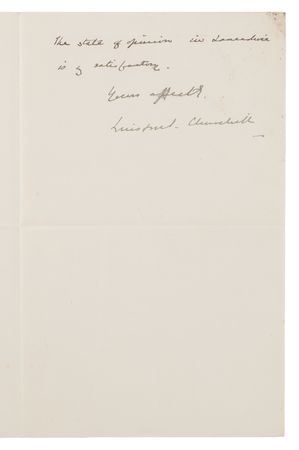 The state of opinion in Lancashire
is satisfactory.
Yours affectly.
Winston S. Churchill